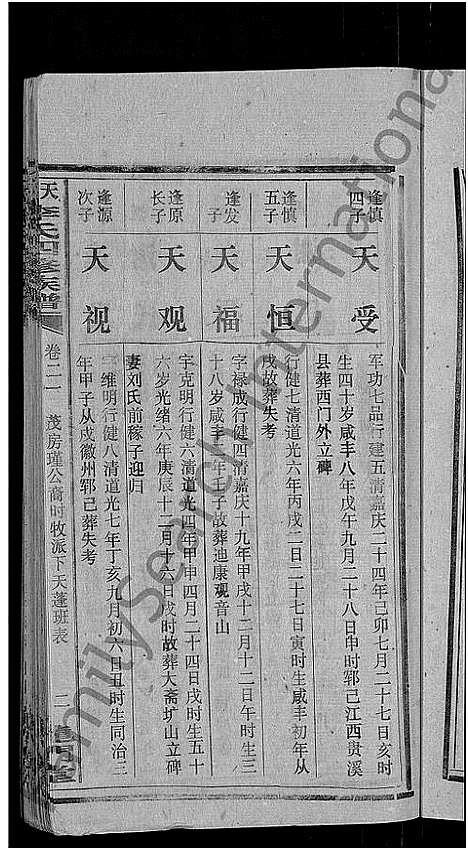 逢慎四子
天受
军功七品行建五清嘉庆二十四年己卯七月二十七日亥时
生四十岁咸丰八年戊午九月二十八日申时郓己江西贵溪
县葬西门外立碑
逢慎五子
天恒
行健七清道光六年丙戌二日二十七日寅时生咸丰初年从
戌故葬失考
逢发子
天福
字禄成行健四清嘉庆十九年甲戌十二月十二日午时生三
十八岁咸丰二年壬子故葬迪康观音山
逢原长子
天观
字克明行健六清道光四年甲申四月二十四日戌时生五十
六岁光绪六年庚辰十二月十六日戌时故葬大斋圹山立碑
妻刘氏前稼子迎归
逢源次子
天视
维明行健八清道光七年丁亥九月初六日丑时生同治三
年甲子从戌徽州郓己葬失考
李氏四修族谱
卷二一
茂房瑾公裔时牧派下天蓬班表
二
FamilySearch International